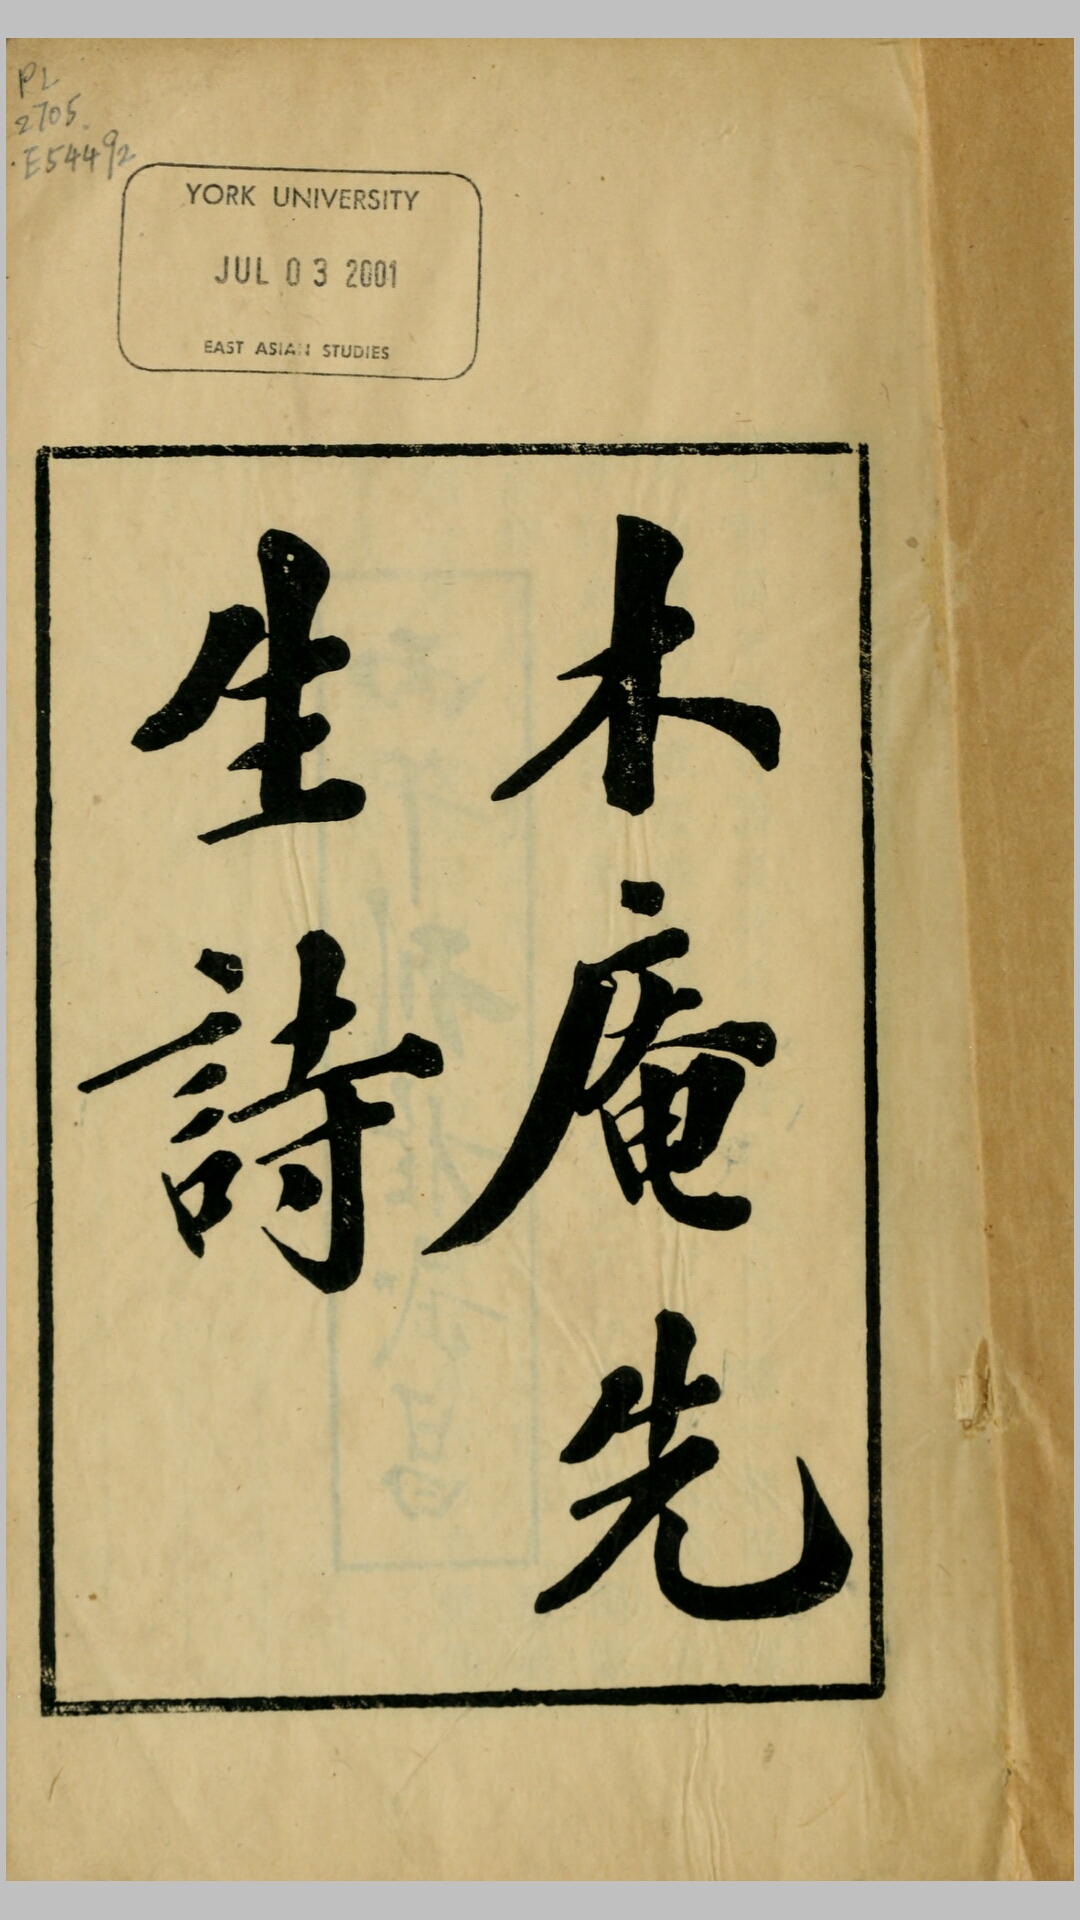 PL
2705
.E54492
YORK UNIVERSITY
JUL 03 2001
EAST ASIAN STUDIES
木庵先
生詩